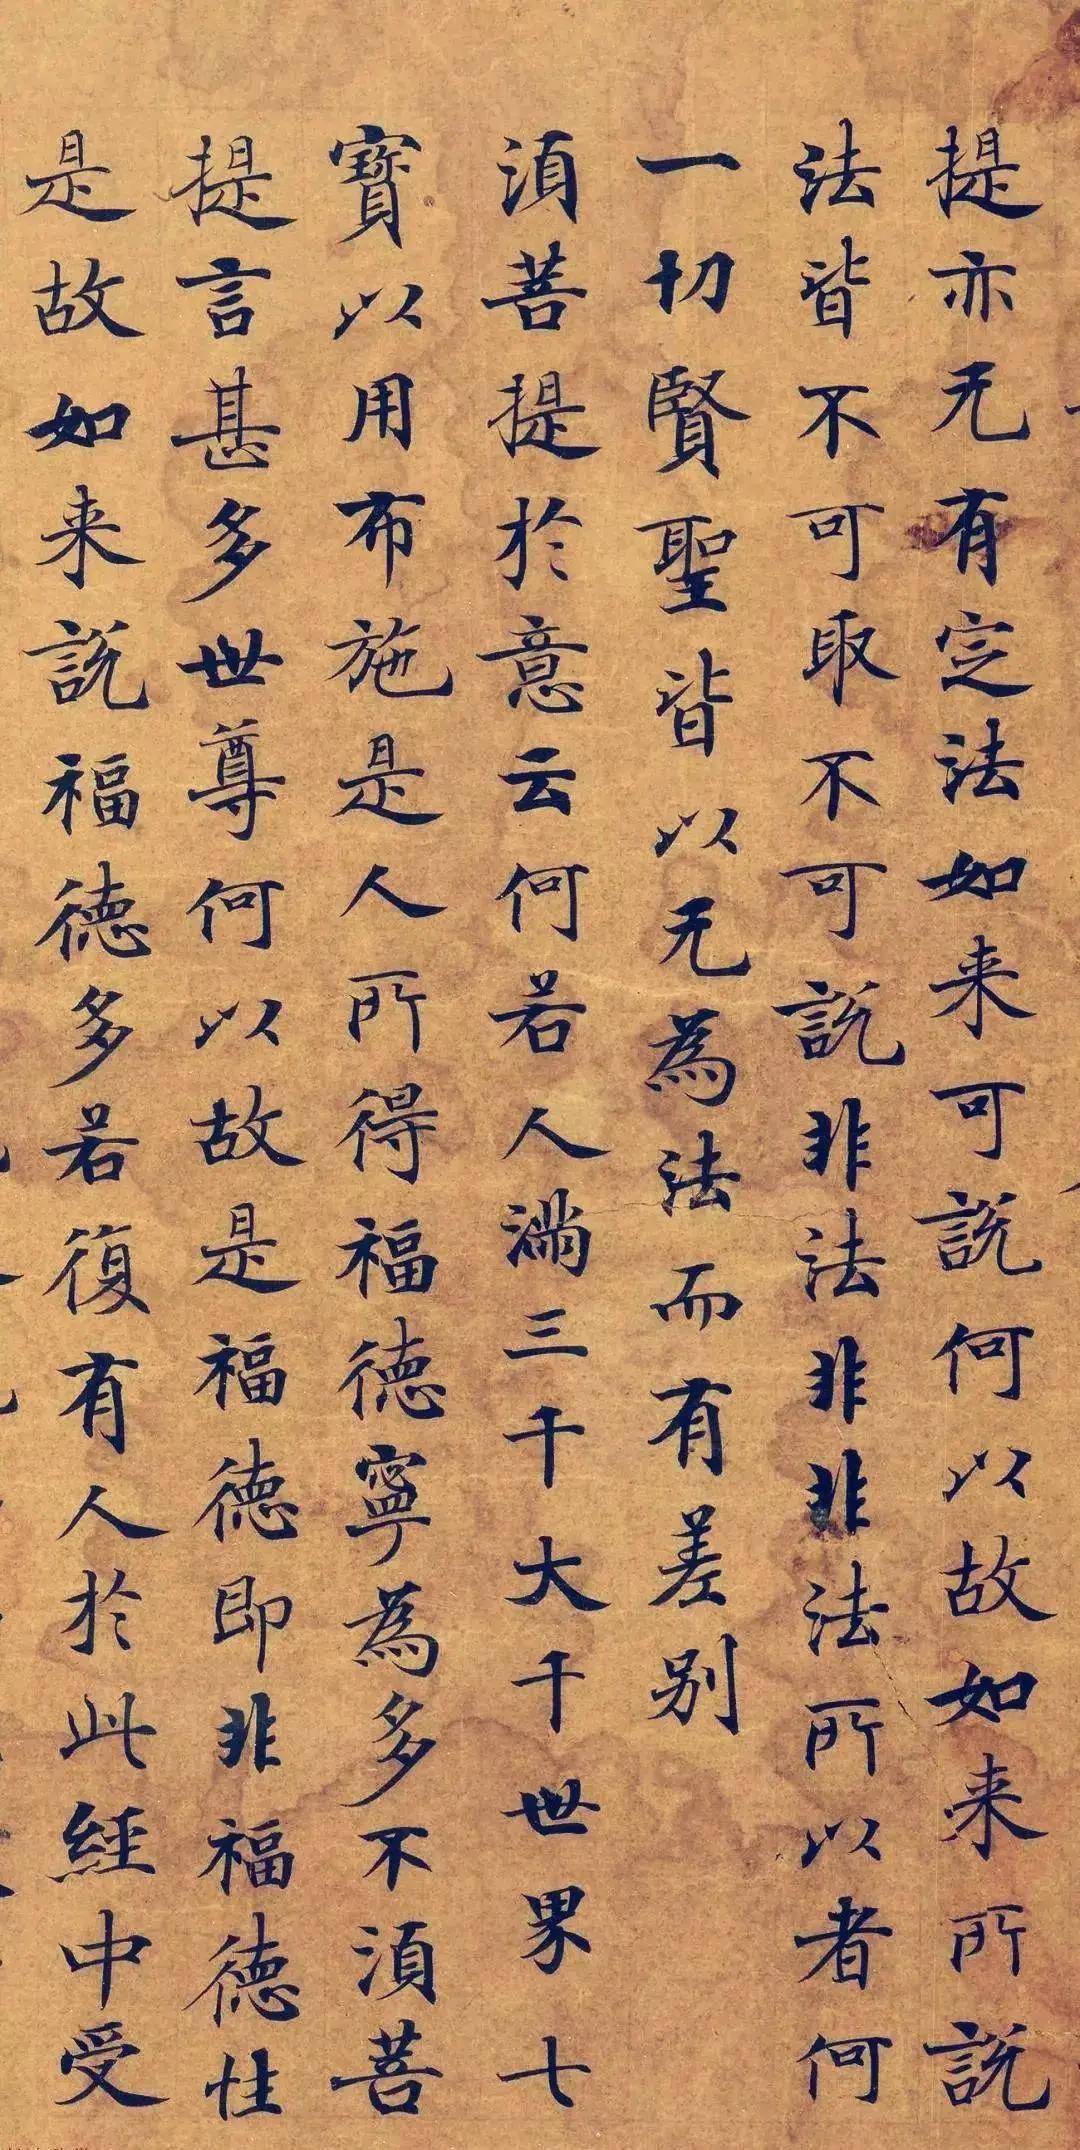 提亦无有定法如来可說何以故如来所說
法皆不可取不可說非法非非法所以者何
一切賢聖皆以无為法而有差別
湏菩提於意云何若人滿三千大千世界七
寶以用布施是人所得福德寧為多不湏菩
提言甚多世尊何以故是福德即非福德性
是故如来說福德多若復有人於此經中受